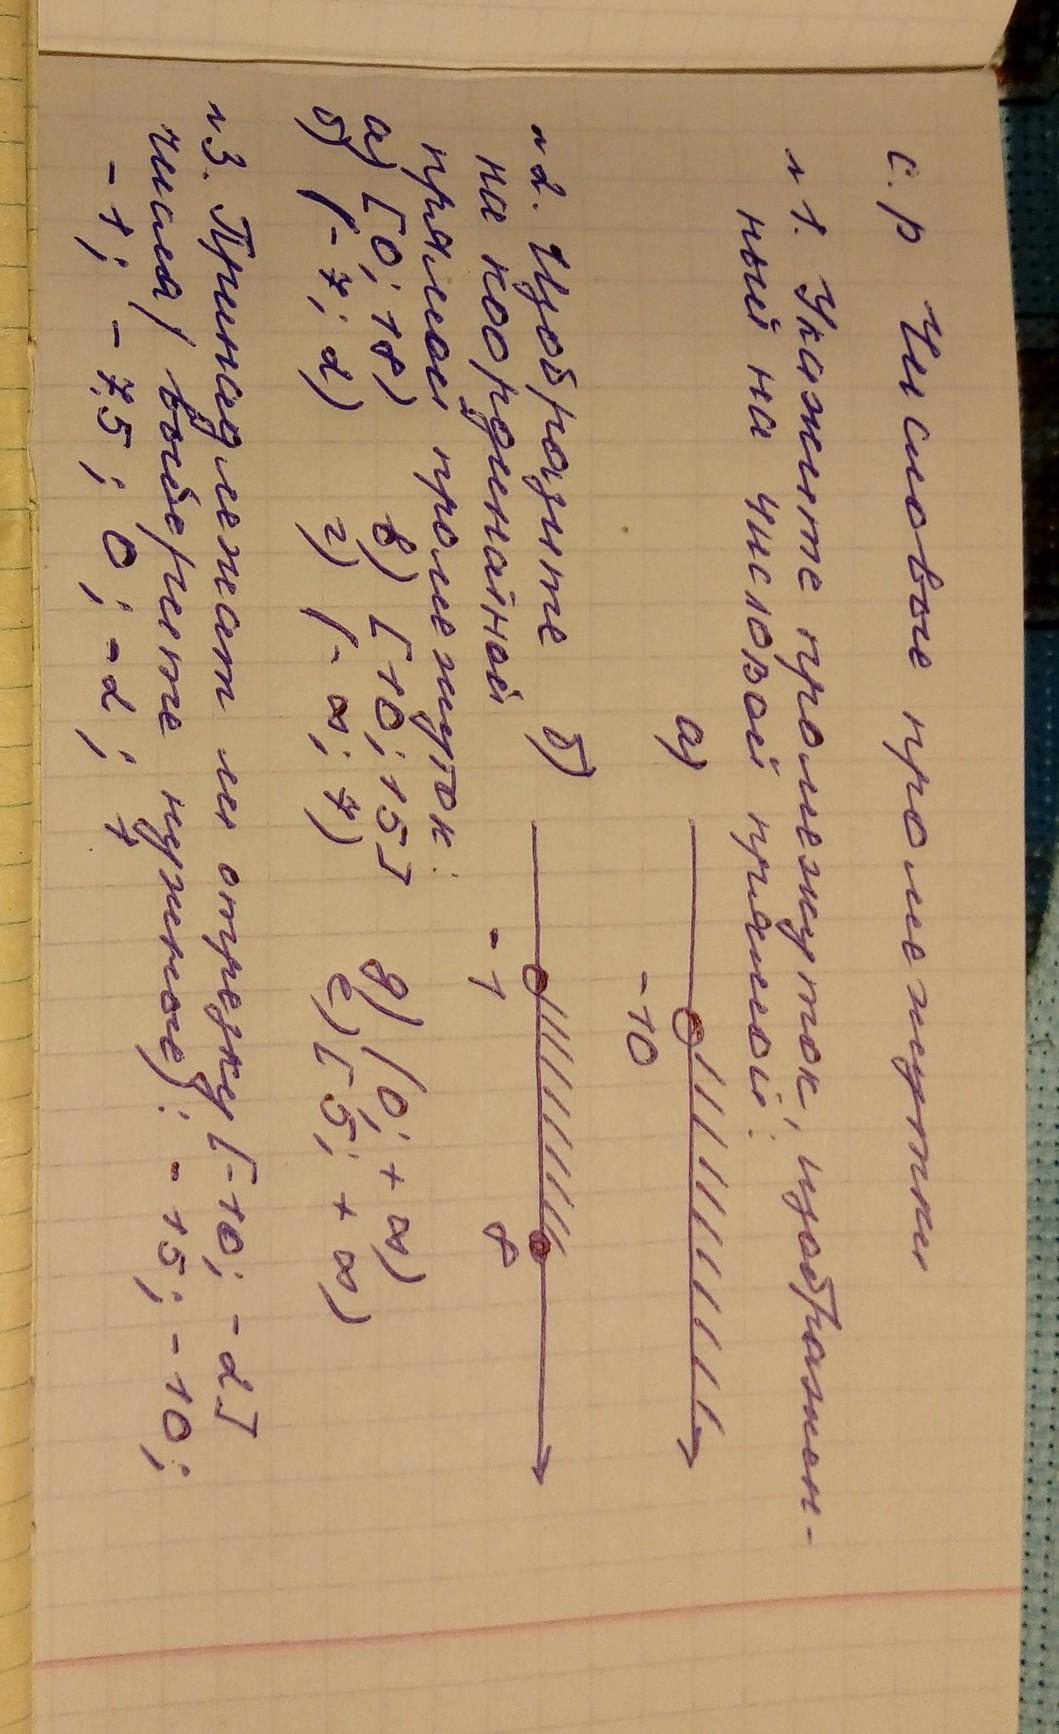 с.р Числовые промежутки
№1. Укажите промежуток, изображен-
ный на числовой прямой:
а)
-10
б)
-1 8
№2. Изобразите
на координатной
прямой промежуток:
а) [0; 18) в) [-10; 15] д) (0; +∞)
б) (-7; 2) г) (-∞; 7) е) [5; +∞)
№3. Принадлежат ли отрезку [-10; -2]
числа (выберите нужные): -15; -10;
-1; -7,5; 0; -2; 7